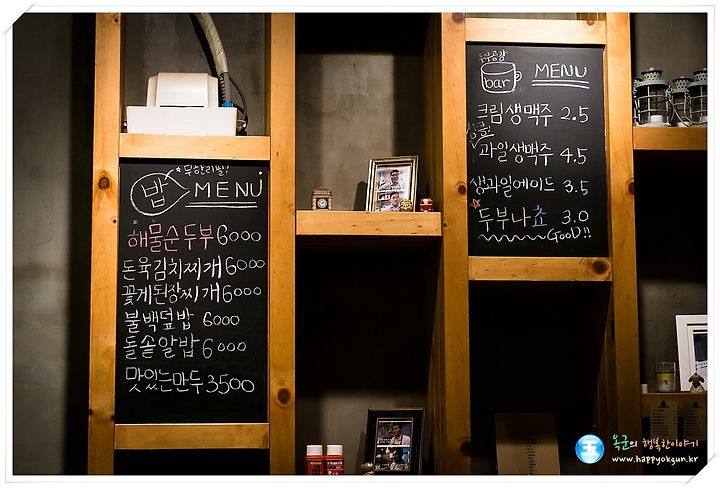 *무한리필!
밥 MENU
해물순두부 6000
돈육김치찌개 6000
꽃게된장찌개 6000
불백덮밥 6000
돌솥알밥 6000
맛있는만두 3500
두부공장
bar MENU
크림생맥주 2.5
상큼
과일생맥주 4.5
생과일에이드 3.5
두부나쵸 3.0
GooD!!
옥군의 행복한이야기
www.happyokgun.kr